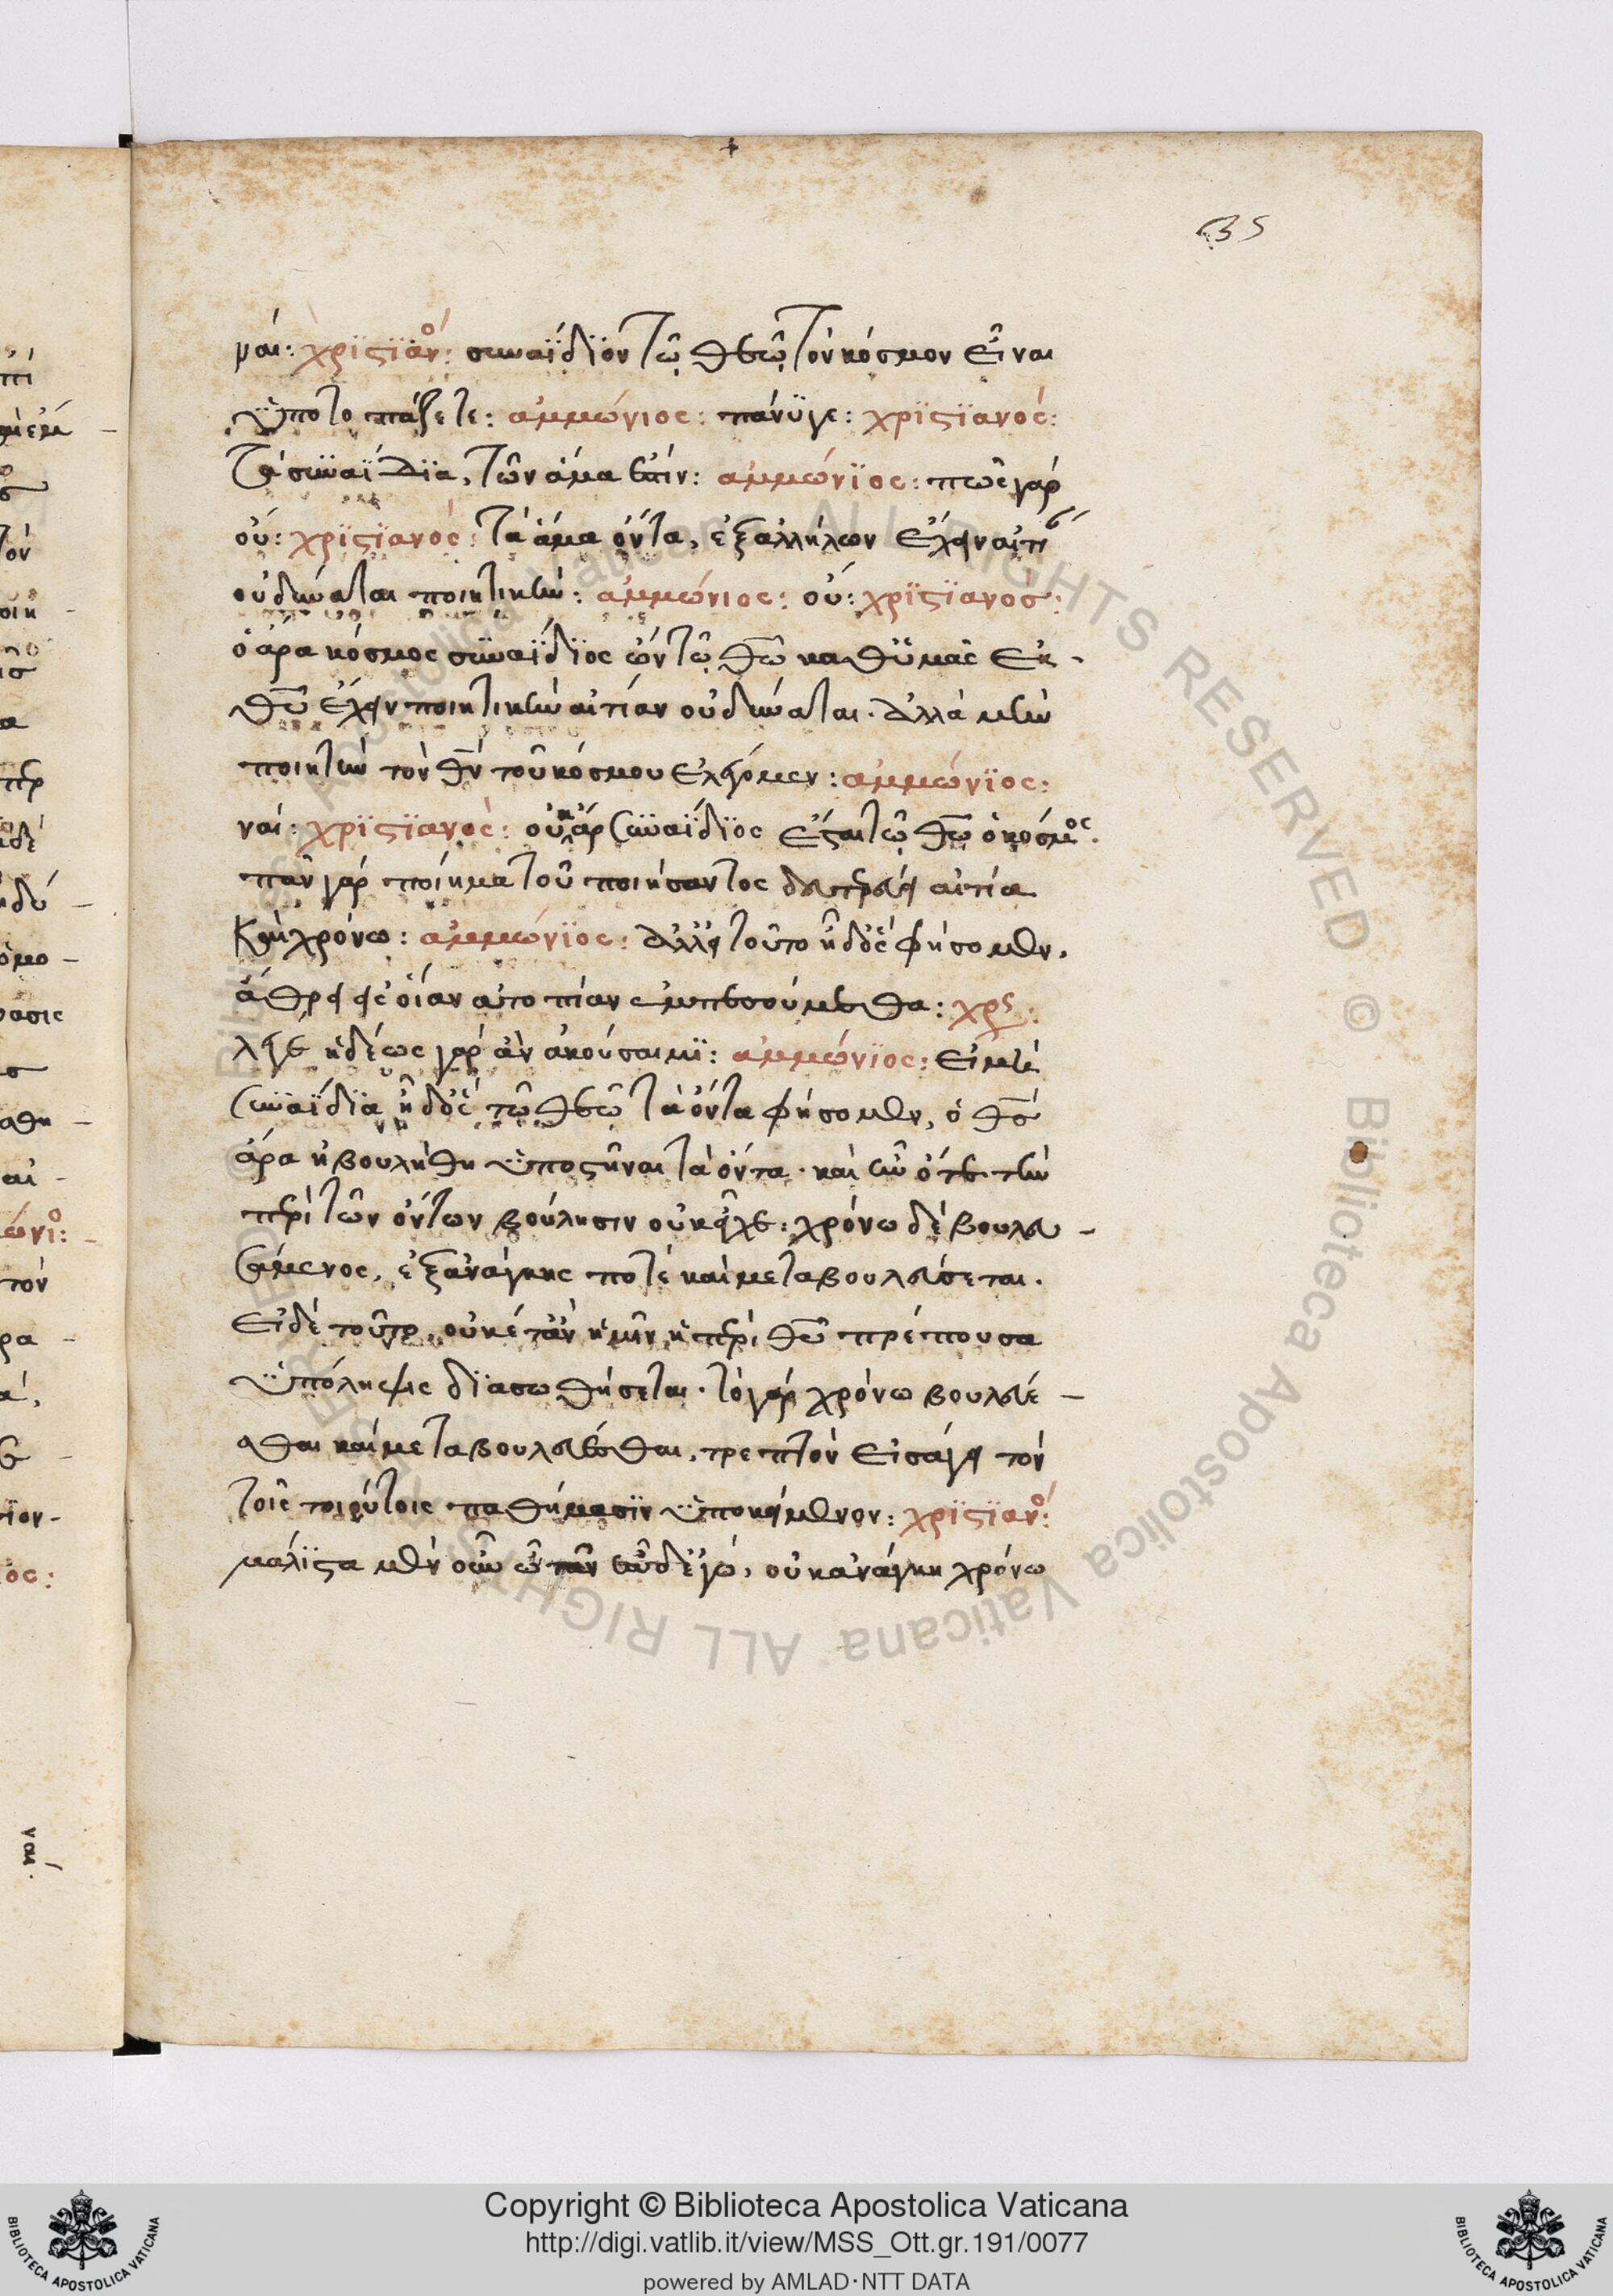 35
ναι: χριστιανο: συναΐδιον τῷ θεῷ τὸν κόσμον εἶναι
ὑποτοπάζετε: αμμώνιος: πάνυγε: χριστιανός:
τὰ συναΐδια, τῶν ἅμα ἐστίν: αμμώνιος: πῶς γὰρ
οὔ: χριστιανός: τὰ ἅμα ὄντα, ἐξ αλλήλων ἔχειν αἰτι
οὐ δύναται ποιητικήν: αμμώνιος: οὔ: χριστιανός:
ὁ ἄρα κόσμος συναΐδιος ὢν τῷ θω καθ' ὑμᾶς ἐκ
θυ ἔχειν ποιητικὴν αἰτίαν οὐ δύναται. ἀλλὰ μὴν
ποιητὴν τὸν θν τοῦ κόσμου ἐλέγομεν: αμμώνιος:
ναι: χριστιανός: οὐκ ἄρ συναΐδιος ἔσται τῷ θω ὁ κόσμος.
πᾶν γὰρ ποίημα τοῦ ποιήσαντος δευτερεύει αἰτία
καὶ χρόνω: αμμώνιος: ἀλλ' εἰ τοῦτο ᾗδέ φήσομεν,
ἄθρει εἰς οἵαν ατοπίαν ἐμπεσούμεθα: χρς:
λέγε ἡδέως γὰρ ἂν ακούσαιμι: αμμώνιος: εἰ μὴ
συναΐδια ᾗδέ τῷ θεῷ τὰ ὄντα φήσομεν, ὁ θς
ἄρα ἠβουλήθη ὑποστῆναι τὰ ὄντα. καὶ ἦν ὅτε τὴν
περὶ τῶν ὄντων βούλησιν οὐκ εἶχε: χρόνω δὲ βουλευ-
σάμενος, ἐξ ανάγκης ποτὲ καὶ μεταβουλεύσεται.
εἰ δὲ τοῦτο, οὐκέτ' ἂν ἡμῖν ἡ περὶ θυ πρέπουσα
ὑπόληψις διασωθήσεται. τὸ γὰρ χρόνω βουλεύε-
σθαι καὶ μεταβουλεύεσθαι, τρεπτὸν εἰσάγει τὸν
τοῖς τοιούτοις παθήμασιν ὑποκείμενον: χριστιανο:
μάλιστα μὲν οὖν ὦ τὰν οὐδ' ἐγώ, οὐκ ανάγκη χρόνω
ναί.
Copyright © Biblioteca Apostolica Vaticana
http://digi.vatlib.it/view/MSS_Ott.gr.191/0077
powered by AMLAD·NTT DATA